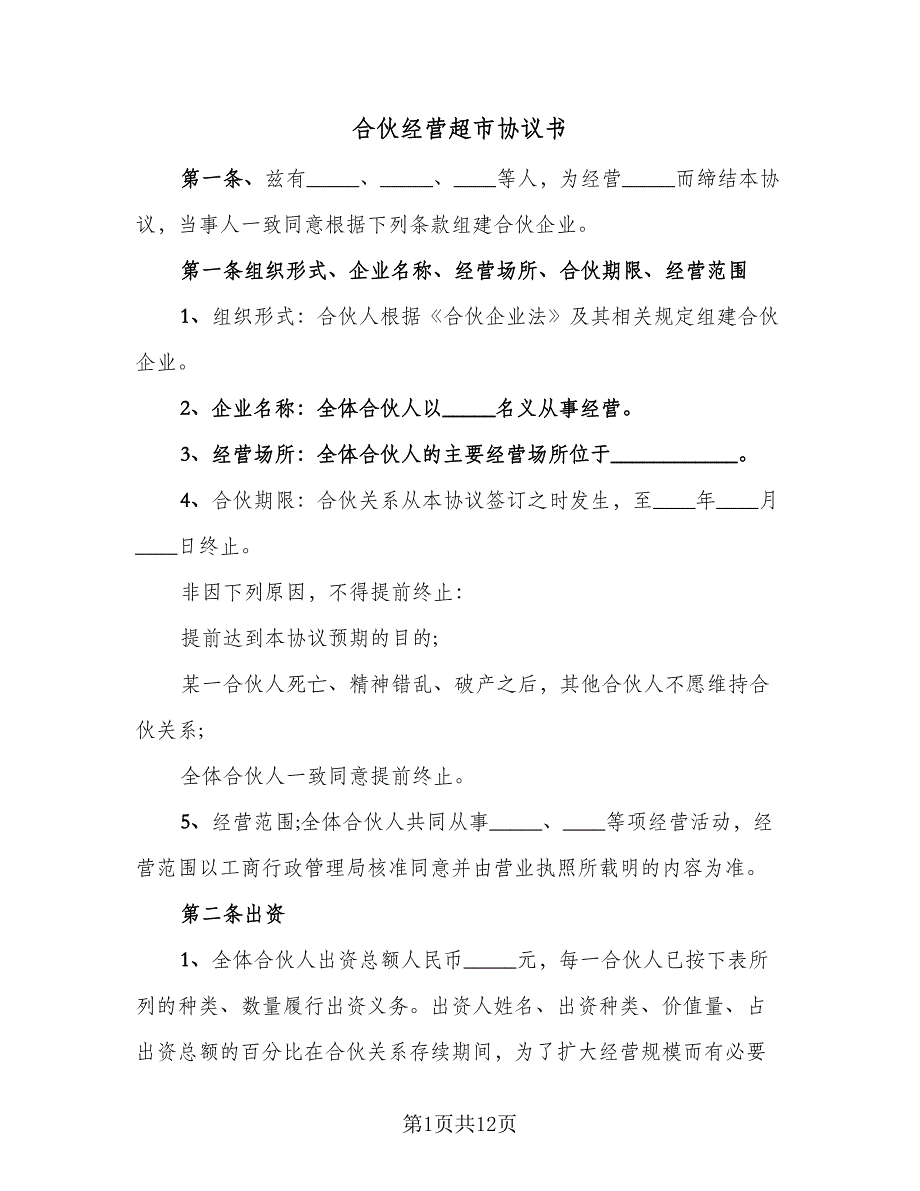 合伙经营超市协议书
第一条、兹有_____、_____、____等人，为经营_____而缔结本协
议，当事人一致同意根据下列条款组建合伙企业。
第一条组织形式、企业名称、经营场所、合伙期限、经营范围
1、组织形式：合伙人根据《合伙企业法》及其相关规定组建合伙
企业。
2、企业名称：全体合伙人以_____名义从事经营。
3、经营场所：全体合伙人的主要经营场所位于____________。
4、合伙期限：合伙关系从本协议签订之时发生，至____年____月
____日终止。
非因下列原因，不得提前终止：
提前达到本协议预期的目的;
某一合伙人死亡、精神错乱、破产之后，其他合伙人不愿维持合
伙关系;
全体合伙人一致同意提前终止。
5、经营范围;全体合伙人共同从事_____、____等项经营活动，经
营范围以工商行政管理局核准同意并由营业执照所载明的内容为准。
第二条出资
1、全体合伙人出资总额人民币_____元，每一合伙人已按下表所
列的种类、数量履行出资义务。出资人姓名、出资种类、价值量、占
出资总额的百分比在合伙关系存续期间，为了扩大经营规模而有必要
第1页共12页